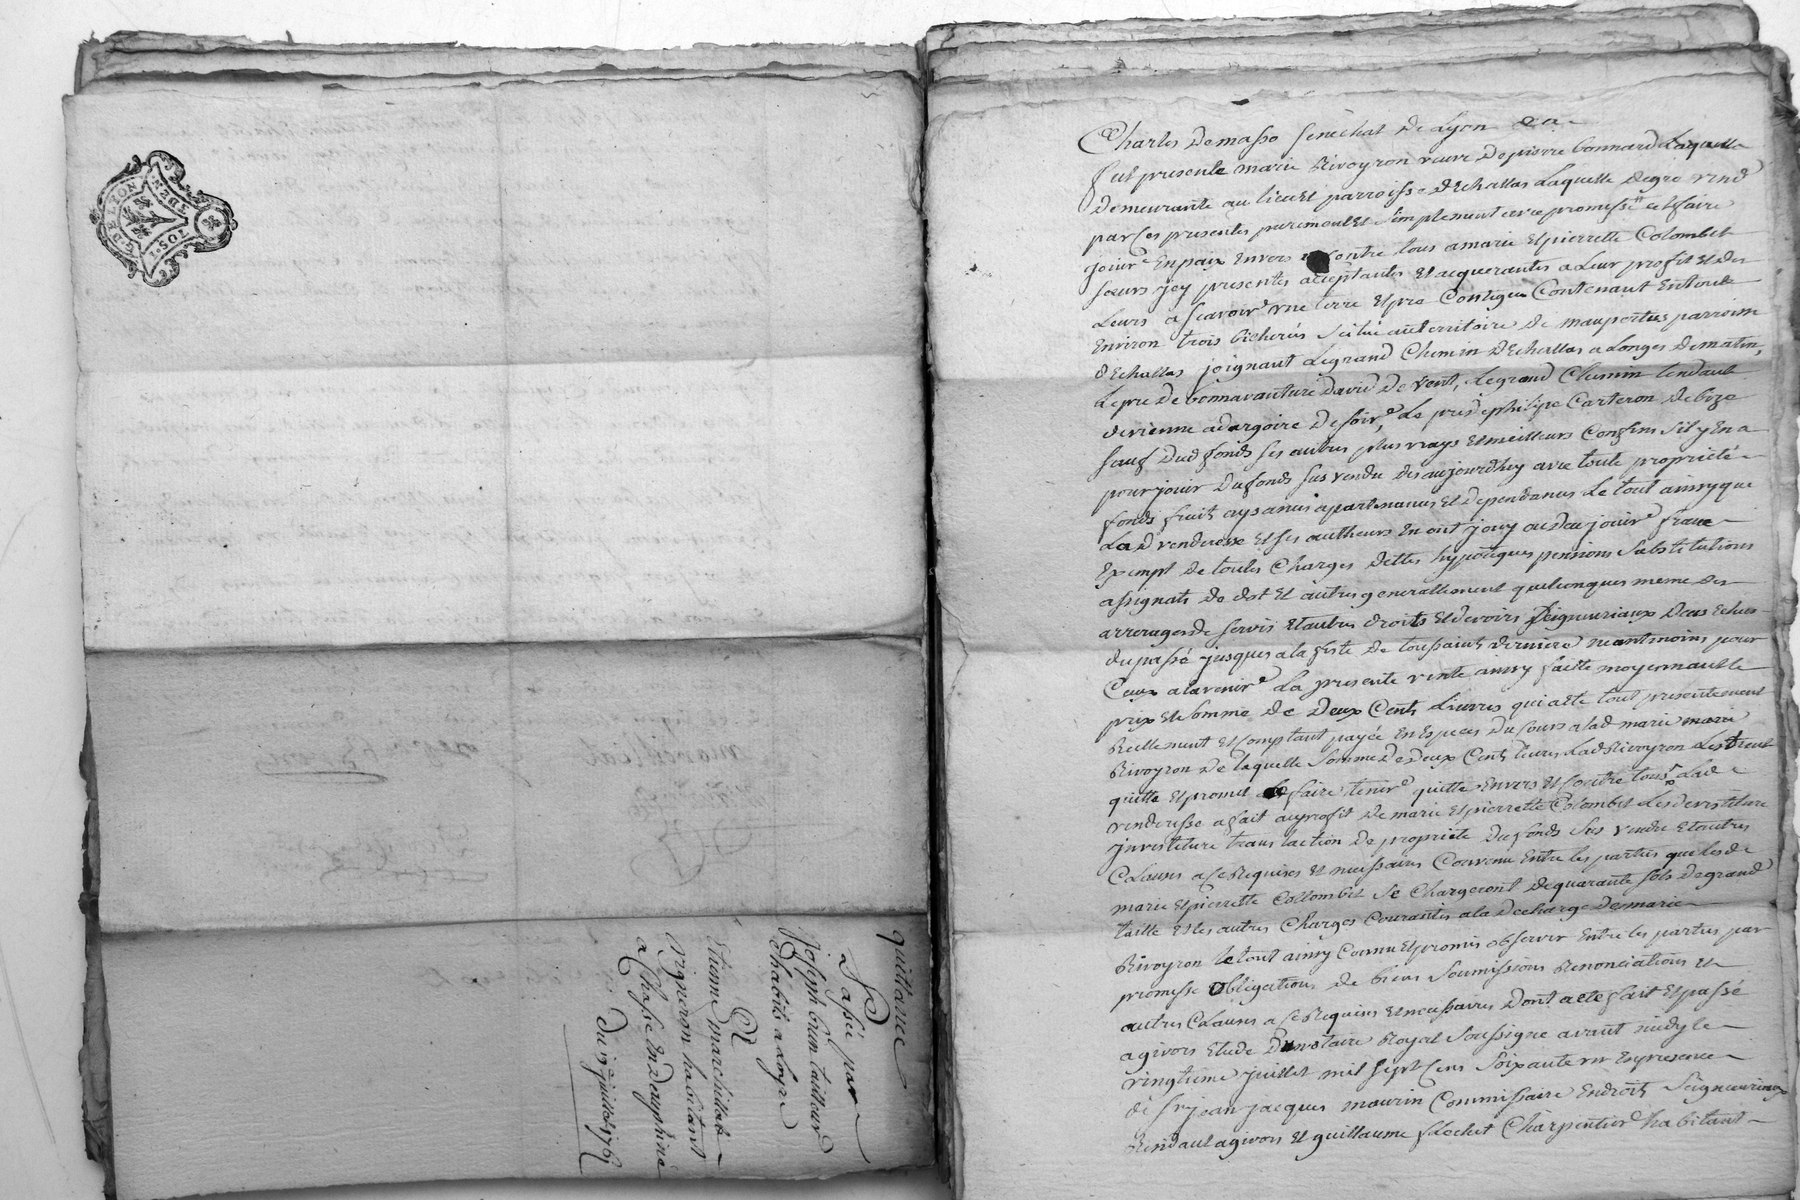 G. DE LYON
2 SOLS
quittance
Passé par
Joseph brun tailleur
d'habits a Loyre
A
Etienne marchillat
vigneron habitant
a Chasse En Dauphiné
Du 19e juillet 1761
Charles Demasso senechal de Lyon
fut presente marie Rivoyron veuve De pierre bonnard Laquelle
Demeurante au lieu et parroisse d'Echallas Laquelle degré vend
par Ces presentes purement Et simplement avec promesse de faire
jouir En paix Envers et contre tous a marie Et pierrette Colombet
sœurs jcy presentes acceptantes Et acquerantes a Leur profit Et des
Leurs a scavoir une terre Et pré Contigus Contenant En tout
Environ trois bicherées scitué au territoire de maupertuis parroisse
d'Echallas joignant Le grand Chemin d'Echallas a Longes de matin,
Le pré de bonnavanture David De vent, Le grand Chemin tendant
de vienne a dargoire De soir, Le pré de philipe Carteron de bize
sauf Dud fonds ses autres plus vrays Et meilleurs Confins s'il y En a
pour jouir Du fonds sus vendu des aujourdhuy avec toute proprieté
fonds fruits aysances apartenances Et dependances Le tout ainsy que
La d venderesse Et ses autheurs En ont jouy ou deu jouir franc
Exempt de toutes Charges dettes hypoteques pensions substitutions
assignats de dot Et autres generallement quelconques meme des
arrerages de servis Et autres droits Et devoirs seigneuriaux Deus Echus
du passé jusques a la feste de toussaint derniere neantmoins pour
Ceux a lavenir La presente vente ainsy faitte moyennant le
prix Et somme de Deux Cents Livres qui a eté tout presentement
Reellement Et Comptant payée En Especes du Cours a lad marie marie
Rivoyron De laquelle somme De Deux Cents livres Lad Rivoyron Les tient
quitte Et promet faire tenir quitte Envers Et Contre tous Lad
venderesse a fait au profit De marie Et pierrette Colombet Les devestiture
jnvestiture translaction De proprieté Du fonds sus vendu Et autres
Clauses a ce Requises Et necessaires Convenu Entre les parties que les de
marie Et pierrette Collombet se Chargeront de quarante sols De grand
taille Et les autres Charges Courantes a la Decharge De marie
Rivoyron Le tout ainsy Convenu Et promis observer Entre les parties par
promesse Obligations de biens Soumissions Renonciations Et
autres Clauses a ce Requises Et necessaires Dont acte fait Et passé
a givors Etude Du notaire Royal soussigne avant midy le
vingtieme juillet mil sept Cens soixante un En presence
de sr jean jacques mourin Commissaire En droits Seigneuriaux
Residant a givors Et guillaume flechet Charpentier habitant